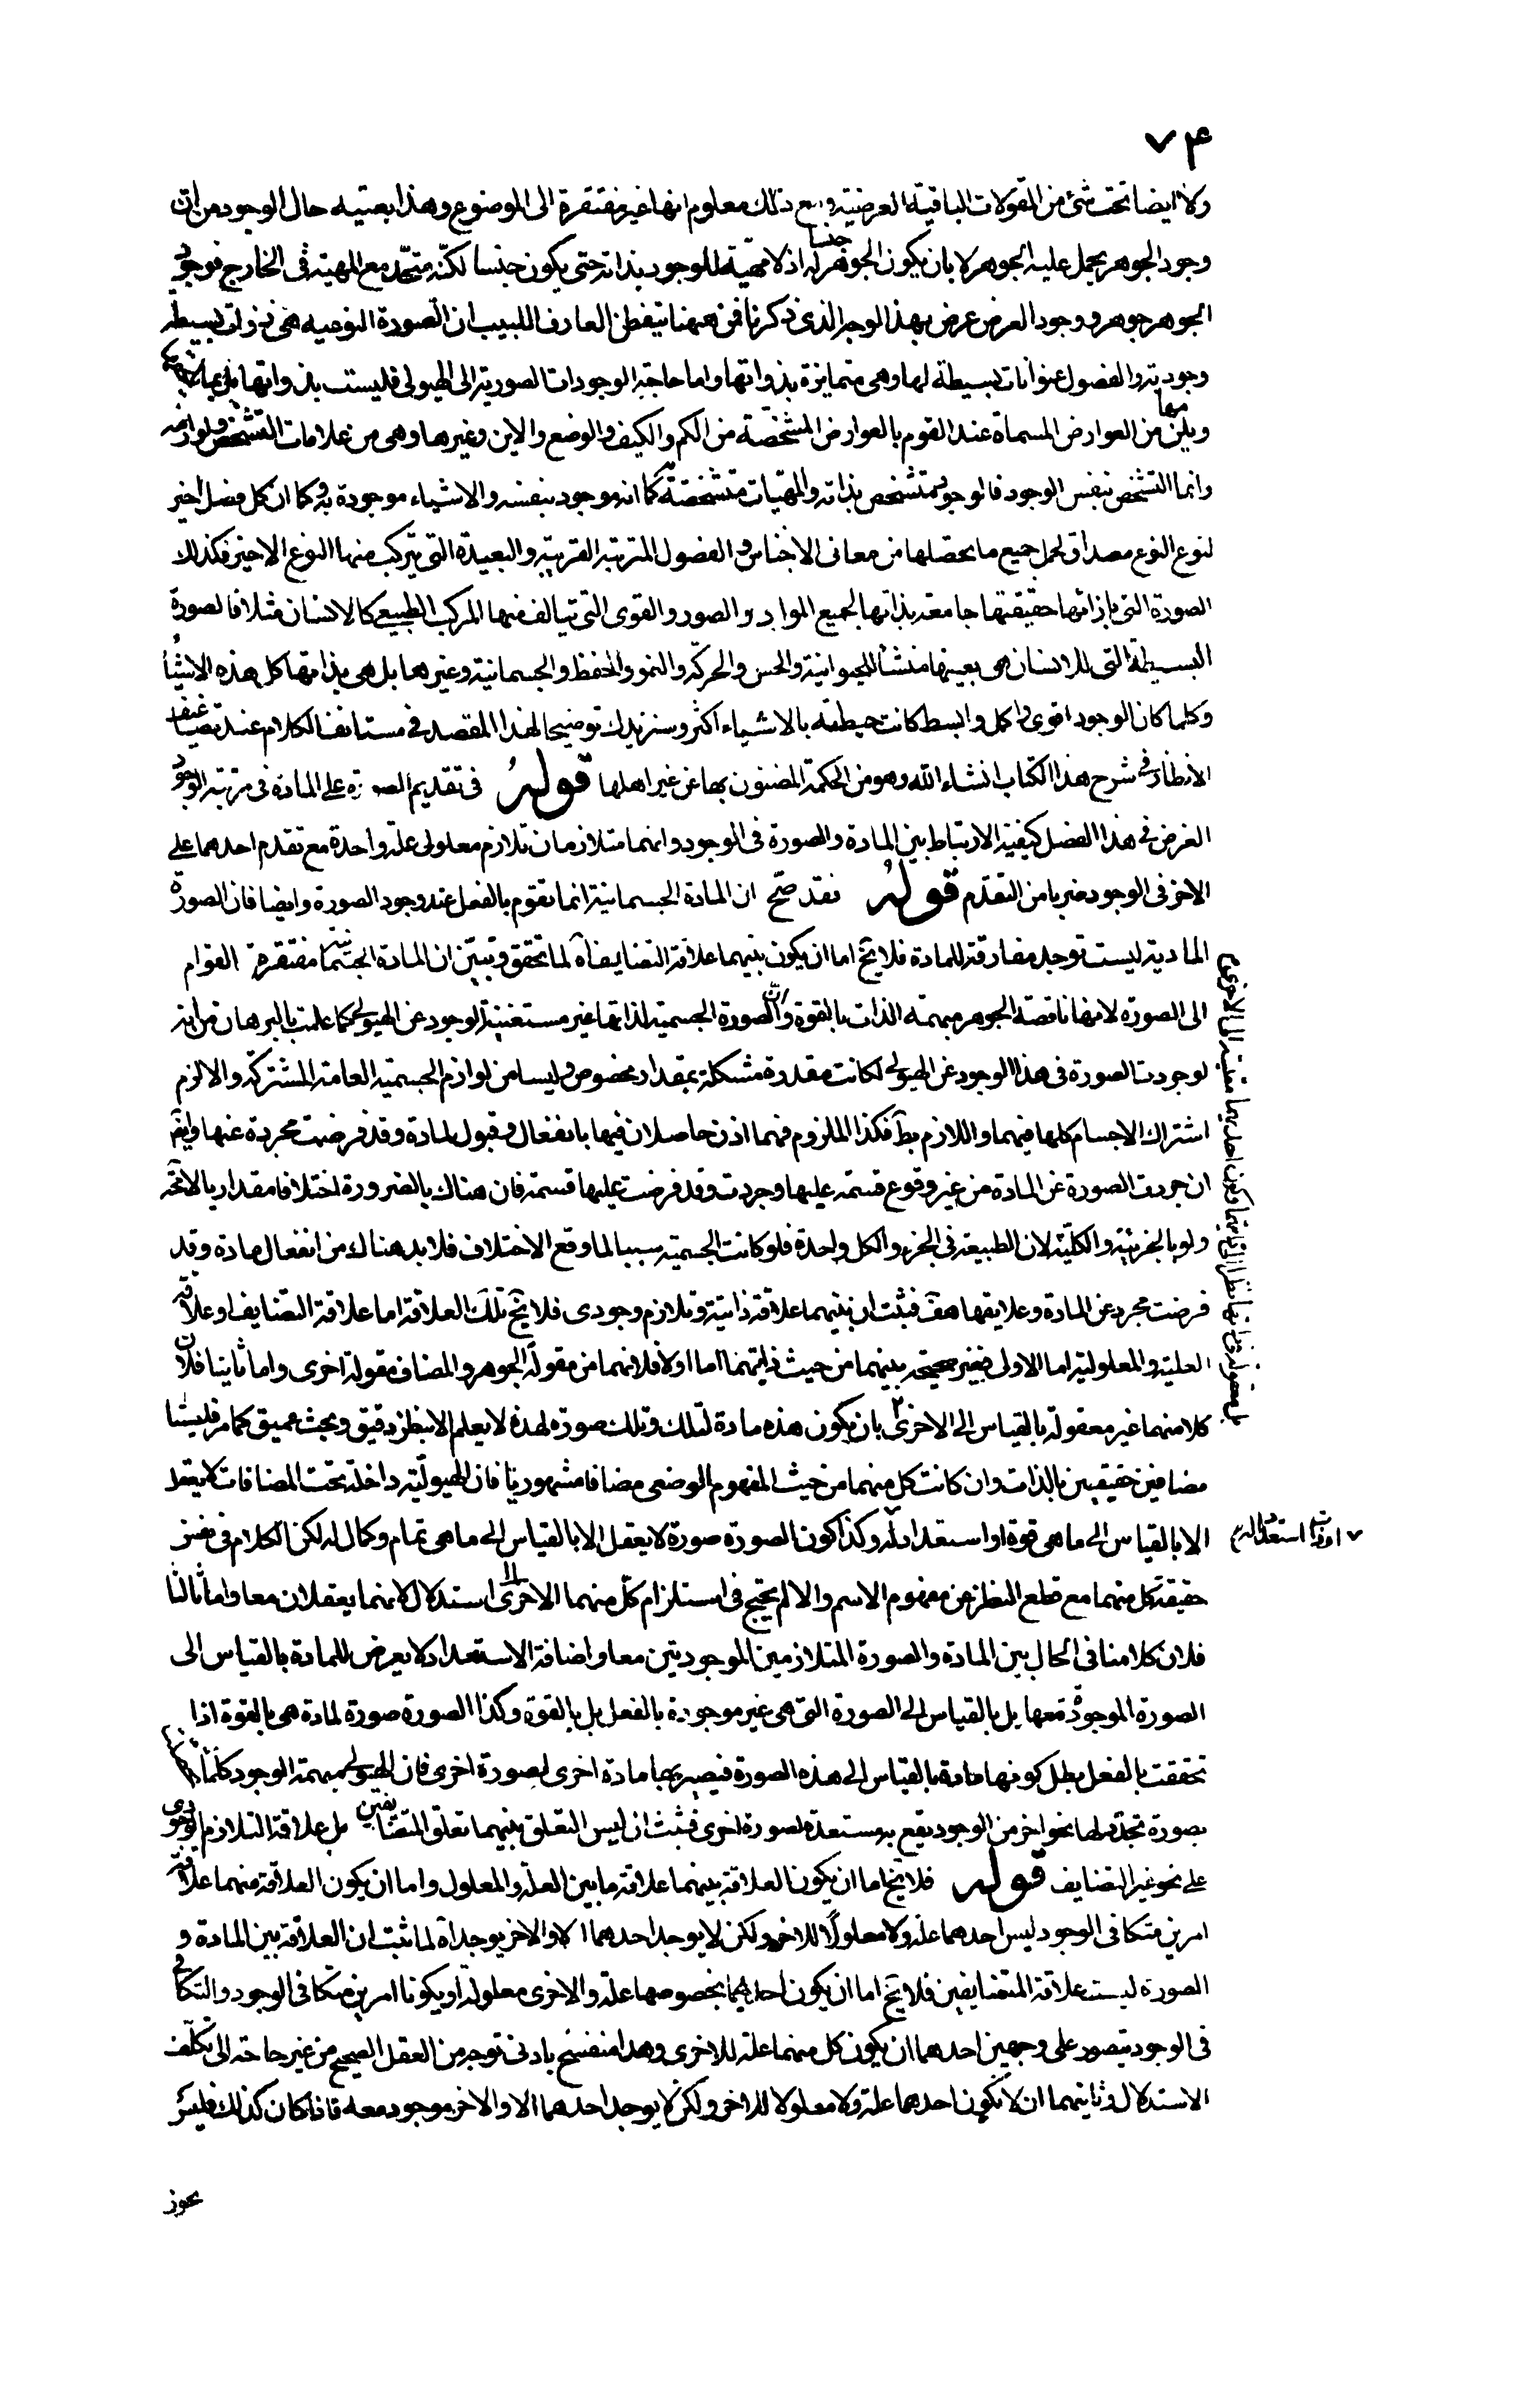 ۷۴
ولا ايضا تحت شئ من المقولات الباقية العرضية ومع ذلك معلوم انها غير مفتقرة الى الموضوع وهذا بعينه حال الوجود من ان
وجود الجوهر يحمل عليه الجوهر لا بان يكون الجوهر جنسا له اذ لا مهية للوجود بذاته حتى يكون جنسا لكنه متحد مع المهية فى الخارج فوجود
الجوهر جوهر ووجود العرض عرض بهذا الوجه الذى ذكرنا فمن ههنا يتفطن العارف اللبيب ان الصورة النوعيه هى ذوات بسيطة
وجودية والفصول عنوانات بسيطة لها وهى متمايزة بذواتها واما حاجة الوجودات الصورية الى الهيولى فليست بذواتها بل بما
ويلزمها من العوارض المسماة عند القوم بالعوارض المشخصة من الكم والكيف والوضع والاين وغيرها وهى من علامات التشخص ولوازمه
وانما التشخص بنفس الوجود فالوجود متشخص بذاته والمهيات متشخصة به كما انه موجود بنفسه والاشياء موجودة به وكما ان كل فصل اخير
لنوع النوع مصداق لحمل جميع ما يحصلها من معانى الاجناس والفصول المترتبة القريبة والبعيدة التى يتركب منها النوع الاخير فكذلك
الصورة التى بازائها حقيقتها جامعة بذاتها لجميع المواد والصور والقوى التى يتالف منها المركب الطبيعى كالانسان مثلا فالصورة
البسيطة التى للانسان هى بعينها منشأ للحيوانية والحس والحركة والنمو والحفظ والجسمانية وغيرها بل هى بذاتها كل هذه الاشياء
وكلما كان الوجود اقوى واكمل وابسط كانت حيطته بالاشياء اكثر وسنزيدك توضيحا لهذا المقصد فى مستانف الكلام عند
الانظار فى شرح هذا الكتاب انشاء الله وهو من الحكمة المضنون بها عن غير اهلها قوله فى تقديم الصورة على المادة فى مرتبة الوجود
الغرض فى هذا الفصل كيفية الارتباط بين المادة والصورة فى الوجود وانهما متلازمان تلازم معلولى علة واحدة مع تقدم احدهما على
الاخر فى الوجود ضربا من التقدم قوله فقد صح ان المادة الجسمانية انما تقوم بالفعل عند وجود الصورة وايضا فان الصورة
المادية ليست توجد مفارقة للمادة فلا يخ اما ان يكون بينهما علاقة التضايف اه لما تحقق وتبين ان المادة الجسمانية مفتقرة القوام
الى الصورة لانها ناقصة الجوهر مبهمة الذات بالقوة وان الصورة الجسمية لذاتها غير مستغنية الوجود عن الهيولى كما علمت بالبرهان من انه
لو جردت الصورة فى هذا الوجود عن الهيولى لكانت مقدرة مشكلة بمقدار مخصوص وليسا من لوازم الجسمية العامة المشتركة والا لزم
اشتراك الاجسام كلها فيهما واللازم بط فكذا الملزوم فهما اذن حاصلان فيها بانفعال وقبول لمادة وقد فرضت مجردة عنها وايضا
ان جردت الصورة عن المادة من غير وقوع قسمة عليها وجردت وقد فرضت عليها قسمة فان هناك بالضرورة اختلافا مقداريا لا محة
ولو بالجزئية والكلية لان الطبيعة فى الجزء والكل واحدة فلو كانت الجسمية سببا لما وقع الاختلاف فلا بد هناك من انفعال مادة وقد
فرضت مجردة عن المادة وعلايقها هف فثبت ان بينهما علاقة ذاتية وتلازم وجودى فلا يخ تلك العلاقة اما علاقة التضايف او علاقة
العلية والمعلولية اما الاولى فغير صحيحة بينهما من حيث ذاتيهما اما اولا فلانهما من مقولة الجوهر والمضاف مقولة اخرى واما ثانيا فلان
كلا منهما غير معقولة بالقياس الى الاخرى بان يكون هذه مادة لتلك وتلك صورة لهذه لا يعلم الا بنظر دقيق وبحث عميق كما مر فليستا
مضافين حقيقيين بالذات وان كانت كل منهما من حيث المفهوم الوضعى مضافا مشهوريا فان الهيولية داخلة تحت المضافات لا يعقل
الا بالقياس الى ما هى قوة او استعداد له وكذا كون الصورة صورة لا يعقل الا بالقياس الى ما هى تمام وكمال له لكن الكلام فى نفس
حقيقة كل منهما مع قطع النظر من مفهوم الاسم والا لم يحتج فى استلزام كل منهما الاخرى الى استدلال لانهما يعقلان معا واما ثالثا
فلان كلامنا فى الحال بين المادة والصورة المتلازمين الموجودتين معا واضافة الاستعداد لا يعرض للمادة بالقياس الى
الصورة الموجودة معها بل بالقياس الى الصورة التى هى غير موجودة بالفعل بل بالقوة وكذا الصورة صورة لمادة هى بالقوة اذا
تحققت بالفعل بطل كونها مادة بالقياس الى هذه الصورة فيصير بها مادة اخرى لصورة اخرى فان الهيولى مبهمة الوجود كلما
بصورة تجدد لها نحو اخر من الوجود يقع به مستعدة لصورة اخرى فثبت ان ليس التعلق بينهما تعلق المتضايفين بل علاقة التلازم الوجودى
على نحو غير التضايف قوله فلا يخ اما ان يكون العلاقة بينهما علاقة ما بين العلة والمعلول واما ان يكون العلاقة منهما علاقة
امرين متكافى الوجود ليس احدهما علة ولا معلولا للاخر ولكن لا يوجد احدهما الا والاخر يوجد اه لما ثبت ان العلاقة بين المادة و
الصورة ليست علاقة المتضايفين فلا يخ اما ان يكون احدهما بخصوصها علة والاخرى معلولة او يكونا امرين متكافى الوجود والتكافى
فى الوجود يتصور على وجهين احدهما ان يكون كل منهما علة للاخرى وهذا منفسخ بادنى توجه من العقل الصحيح من غير حاجة الى تكلف
الاستدلال وثانيهما ان لا يكون احدهما علة ولا معلولا للاخر ولكن لا يوجد احدهما الا والاخر موجود معه فاذا كان كذلك فليس
يجوز